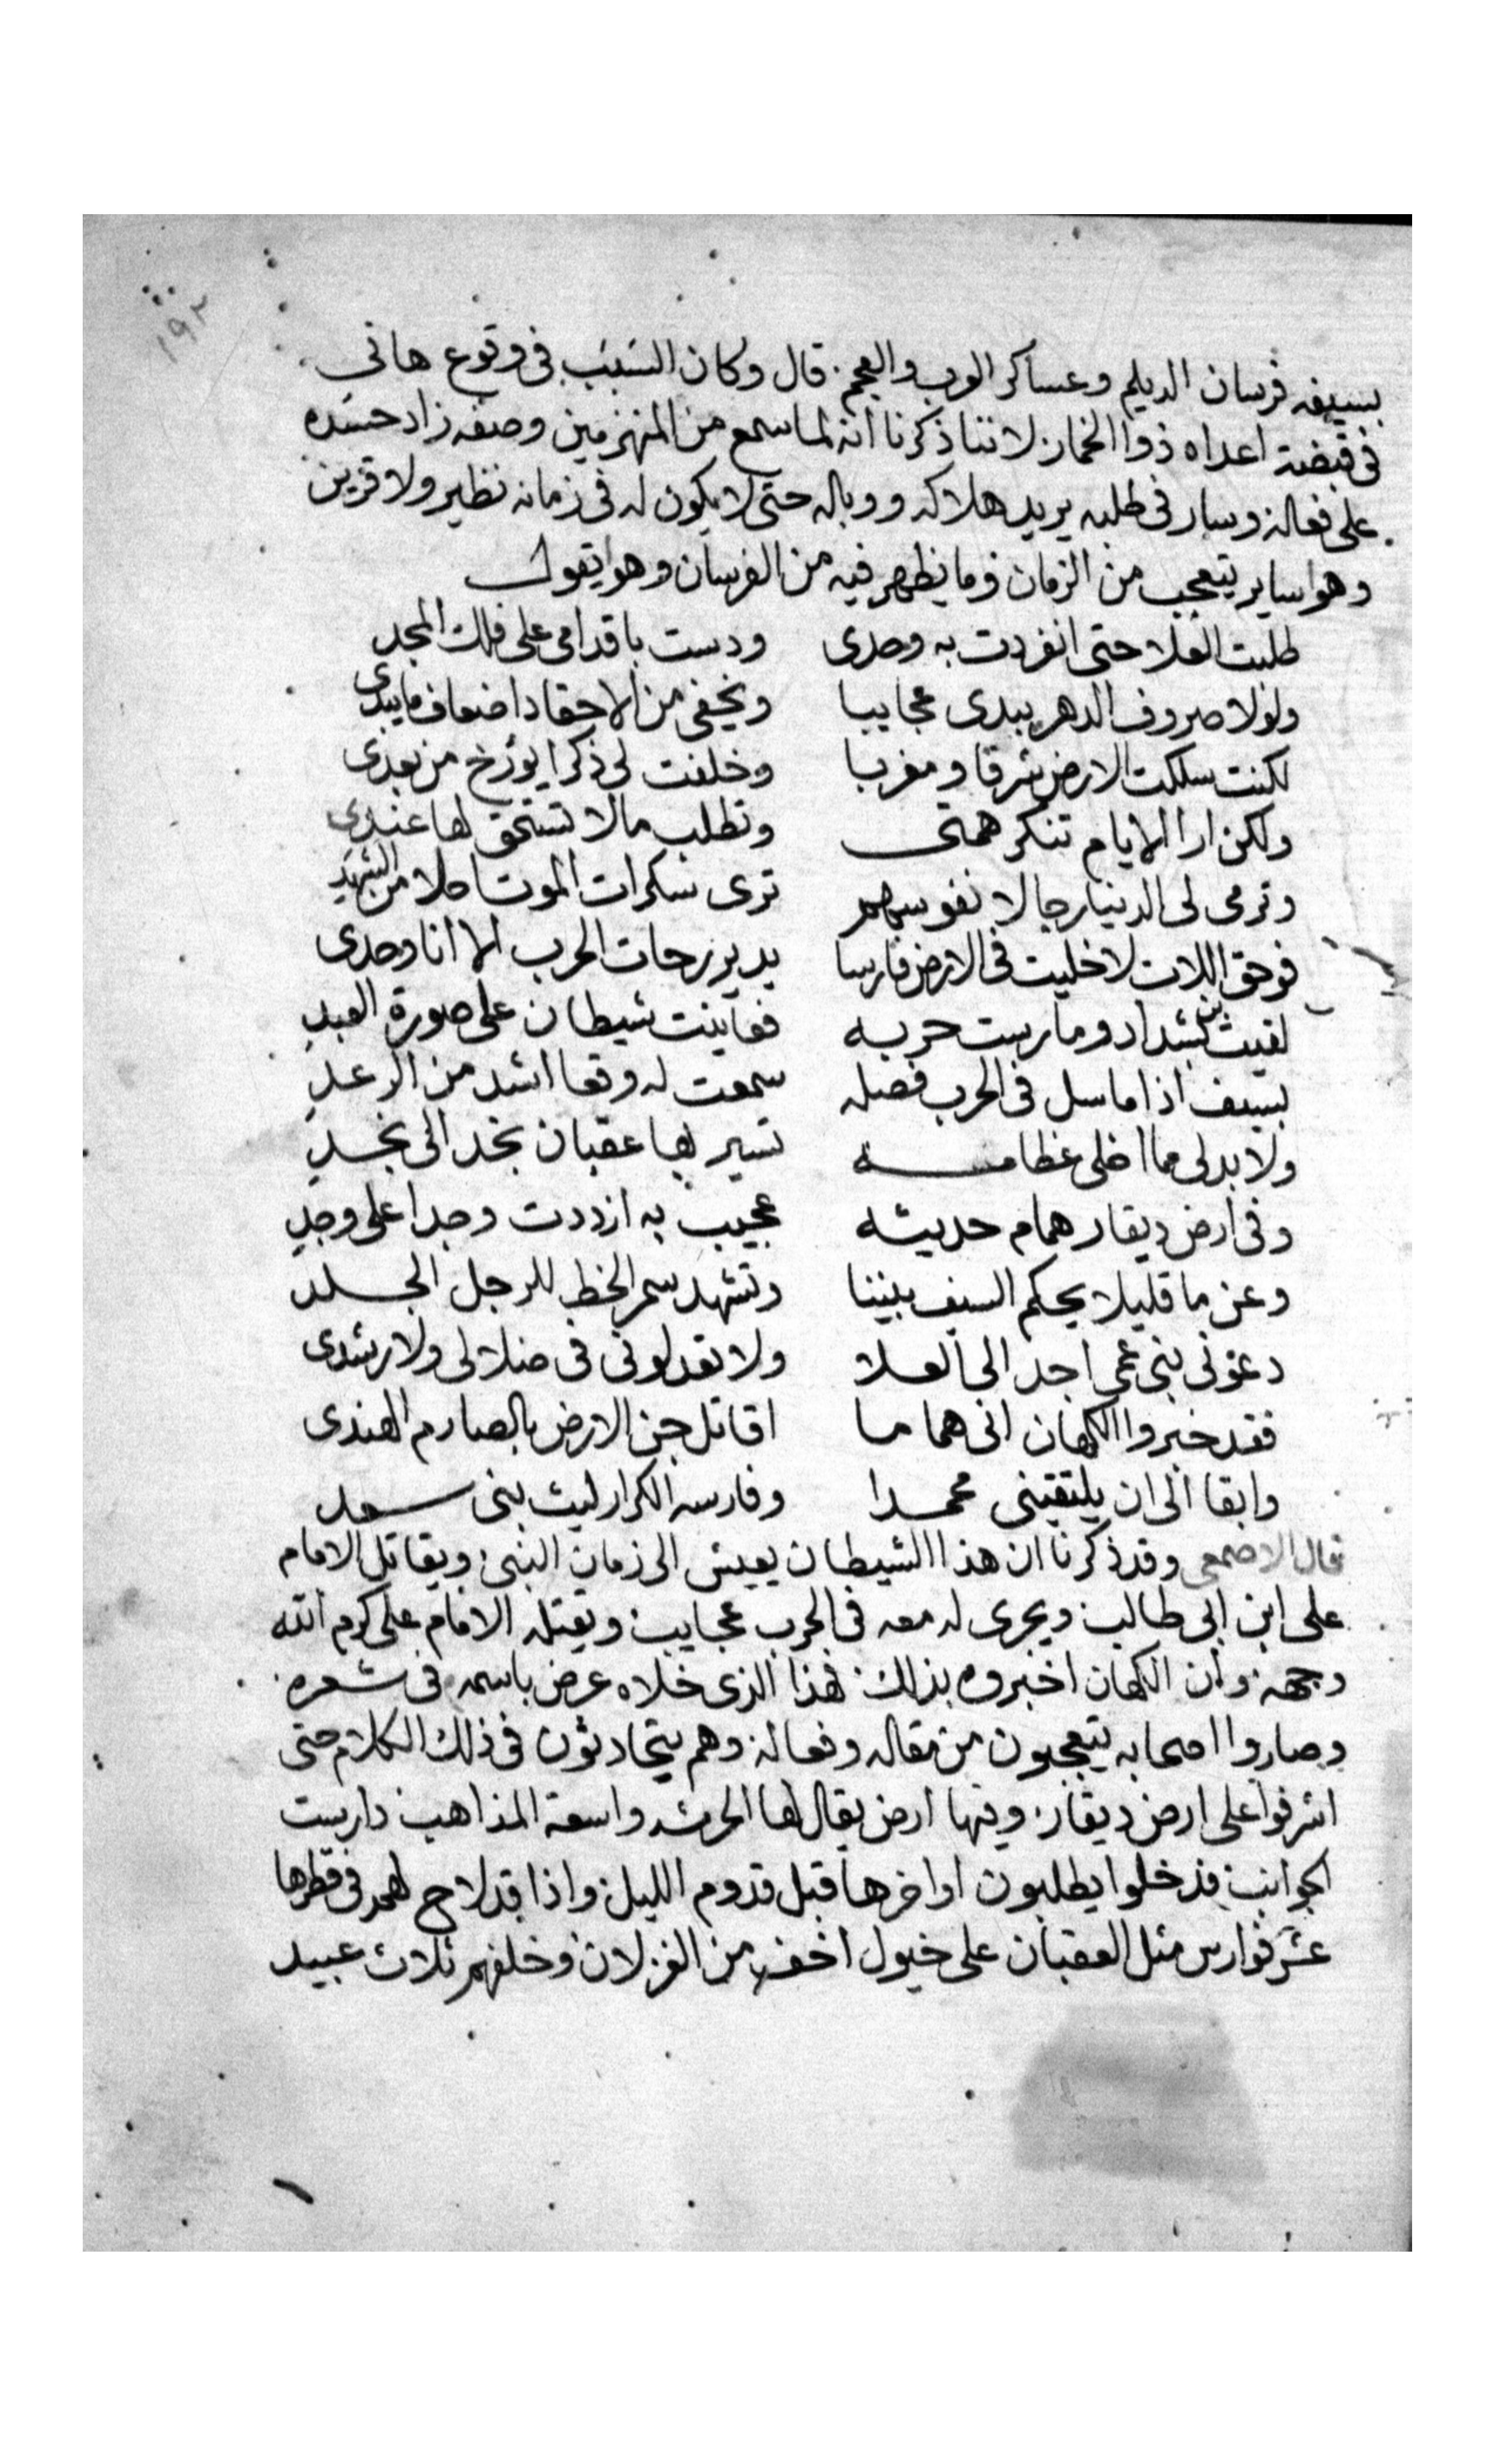 ١٩٢
بسيفه فرسان الديلم وعساكر العرب والعجم. قال وكان السبب فى وقوع هانى
فى قبضة اعداه ذوا الخمار لاننا ذكرنا انه لما سمع من المنهزمين وصفه زاد حسده
على فعاله وسار فى طلبه يريد هلاكه ووباله حتى لا يكون له فى زمانه نظير ولا قرين
وهو ساير يتعجب من الزمان وما يظهر فيه من الفرسان وهو يقول
طلبت العلا حتى انفردت به وحدى ودست باقدامى على فلك المجد
ولولا صروف الدهر يبدى عجايبا ويخفى من الاحقاد اضعاف ما يبدى
لكنت سلكت الارض شرقا ومغربا وخلفت لى ذكرا يورخ من بعدى
ولكن ارا الايام تنكر همتى وتطلب مالا تستحق لها عندى
وترمى لى الدنيا رجالا نفوسهم ترى سكرات الموت احلا من الشهد
فوحق اللات لا خليت فى الارض فارسا يدير رحات الحرب الا انا وحدى
لقيت بن شداد ومارست حربه فعاينت شيطان على صورة العبد
بسيف اذا ما سل فى الحرب فصله سمعت له وقعا اشد من الرعد
ولا بد لى مما اخلى عظامه تسير بها عقبان نجد الى نجد
وفى ارض ديقار همام حديثه عجيب به ازددت وجدا على وجد
وعن ما قليلا يحكم السيف بيننا وتشهد سمر الخط للرجل الجلد
دعونى بنى عمى اجد الى العلا ولا تعدلونى فى ضلالى ولا رشدى
فقد خبروا الكهان انى هماما اقاتل جن الارض بالصارم الهندى
وابقا الى ان يلتقينى محمدا وفارسه الكرار ليث بنى سعد
قال الاصمعى وقد ذكرنا ان هذا الشيطان يعيش الى زمان النبى ويقاتل الامام
على ابن ابى طالب ويجرى له معه فى الحرب عجايب ويقتله الامام على كرم الله
وجهه وان الكهان اخبروه بذلك فهذا الذى خلاه عرض باسمه فى شعره
وصاروا اصحابه يتعجبون من مقاله وفعاله وهم يتحادثون فى ذلك الكلام حتى
اشرفوا على ارض ديقار وفيها ارض يقال لها الحرث واسعة المذاهب دارست
الجوانب فدخلوا يطلبون اواخرها قبل قدوم الليل واذا قد لاح لهم فى قطرها
عشر فوارس مثل العقبان على خيول اخف من الغزلان وخلفهم ثلاث عبيد